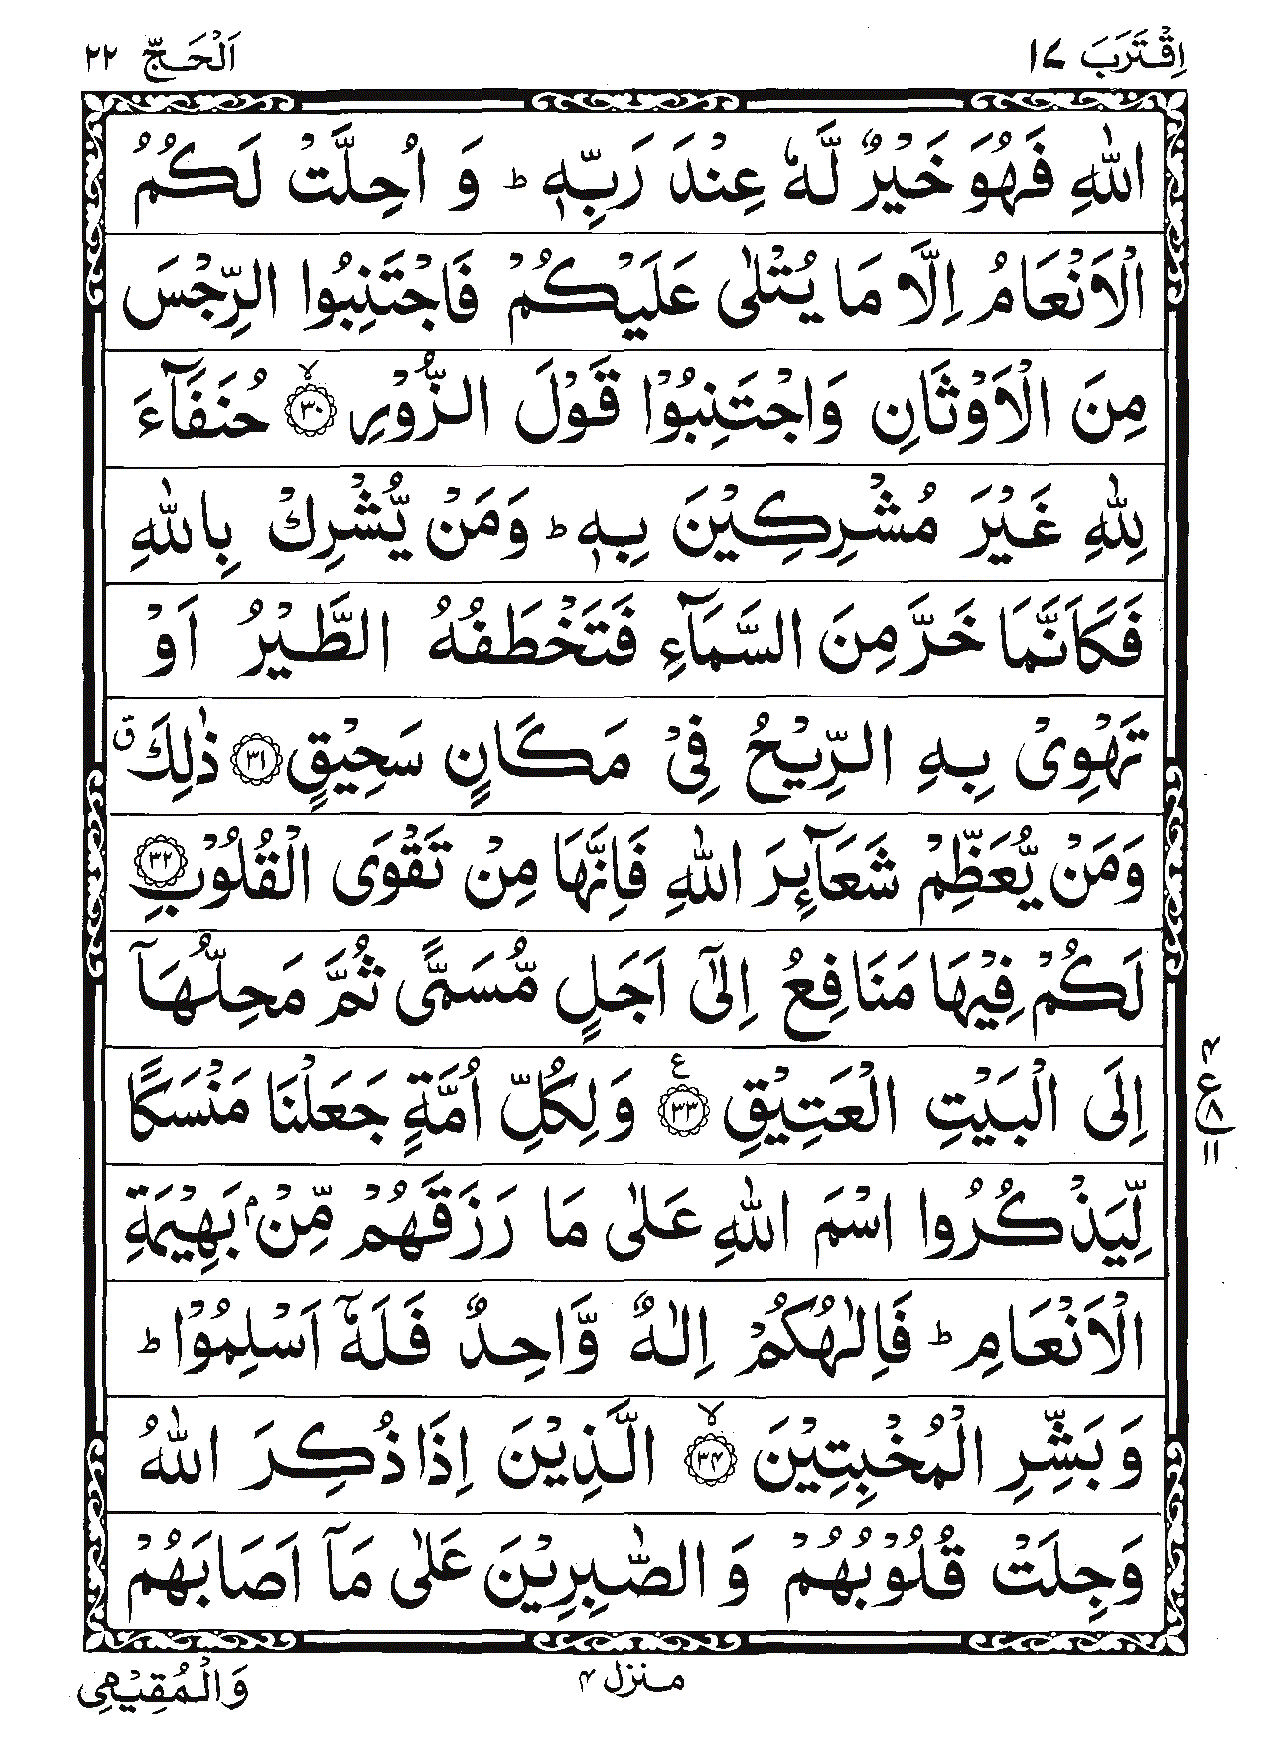 اِقْتَرَبَ ١٧
اَلْحَجّ ٢٢
اللّٰهِ فَهُوَ خَيْرٌ لَّهٗ عِنْدَ رَبِّهٖ ؕ وَ اُحِلَّتْ لَكُمُ
الْاَنْعَامُ اِلَّا مَا يُتْلٰى عَلَيْكُمْ فَاجْتَنِبُوا الرِّجْسَ
مِنَ الْاَوْثَانِ وَاجْتَنِبُوْا قَوْلَ الزُّوْرِ ۙ‏ ﴿٣٠﴾ حُنَفَآءَ
لِلّٰهِ غَيْرَ مُشْرِكِيْنَ بِهٖ ؕ وَمَنْ يُّشْرِكْ بِاللّٰهِ
فَكَاَنَّمَا خَرَّ مِنَ السَّمَآءِ فَتَخْطَفُهُ الطَّيْرُ اَوْ
تَهْوِىْ بِهِ الرِّيْحُ فِىْ مَكَانٍ سَحِيْقٍ ﴿٣١﴾ ذٰلِكَ ق
وَمَنْ يُّعَظِّمْ شَعَآئِرَ اللّٰهِ فَاِنَّهَا مِنْ تَقْوَى الْقُلُوْبِ ﴿٣٢﴾
لَكُمْ فِيْهَا مَنَافِعُ اِلٰٓى اَجَلٍ مُّسَمًّى ثُمَّ مَحِلُّهَاۤ
اِلَى الْبَيْتِ الْعَتِيْقِ ﴿٣٣﴾ ع وَلِكُلِّ اُمَّةٍ جَعَلْنَا مَنْسَكًا
٤ ع ٨ ١١
لِّيَذْكُرُوا اسْمَ اللّٰهِ عَلٰى مَا رَزَقَهُمْ مِّنْۢ بَهِيْمَةِ
الْاَنْعَامِ ؕ فَاِلٰهُكُمْ اِلٰهٌ وَّاحِدٌ فَلَهٗۤ اَسْلِمُوْا ؕ
وَبَشِّرِ الْمُخْبِتِيْنَ ۙ ﴿٣٤﴾ الَّذِيْنَ اِذَا ذُكِرَ اللّٰهُ
وَجِلَتْ قُلُوْبُهُمْ وَ الصّٰبِرِيْنَ عَلٰى مَاۤ اَصَابَهُمْ
منزل ٤
وَالْمُقِيْمِى